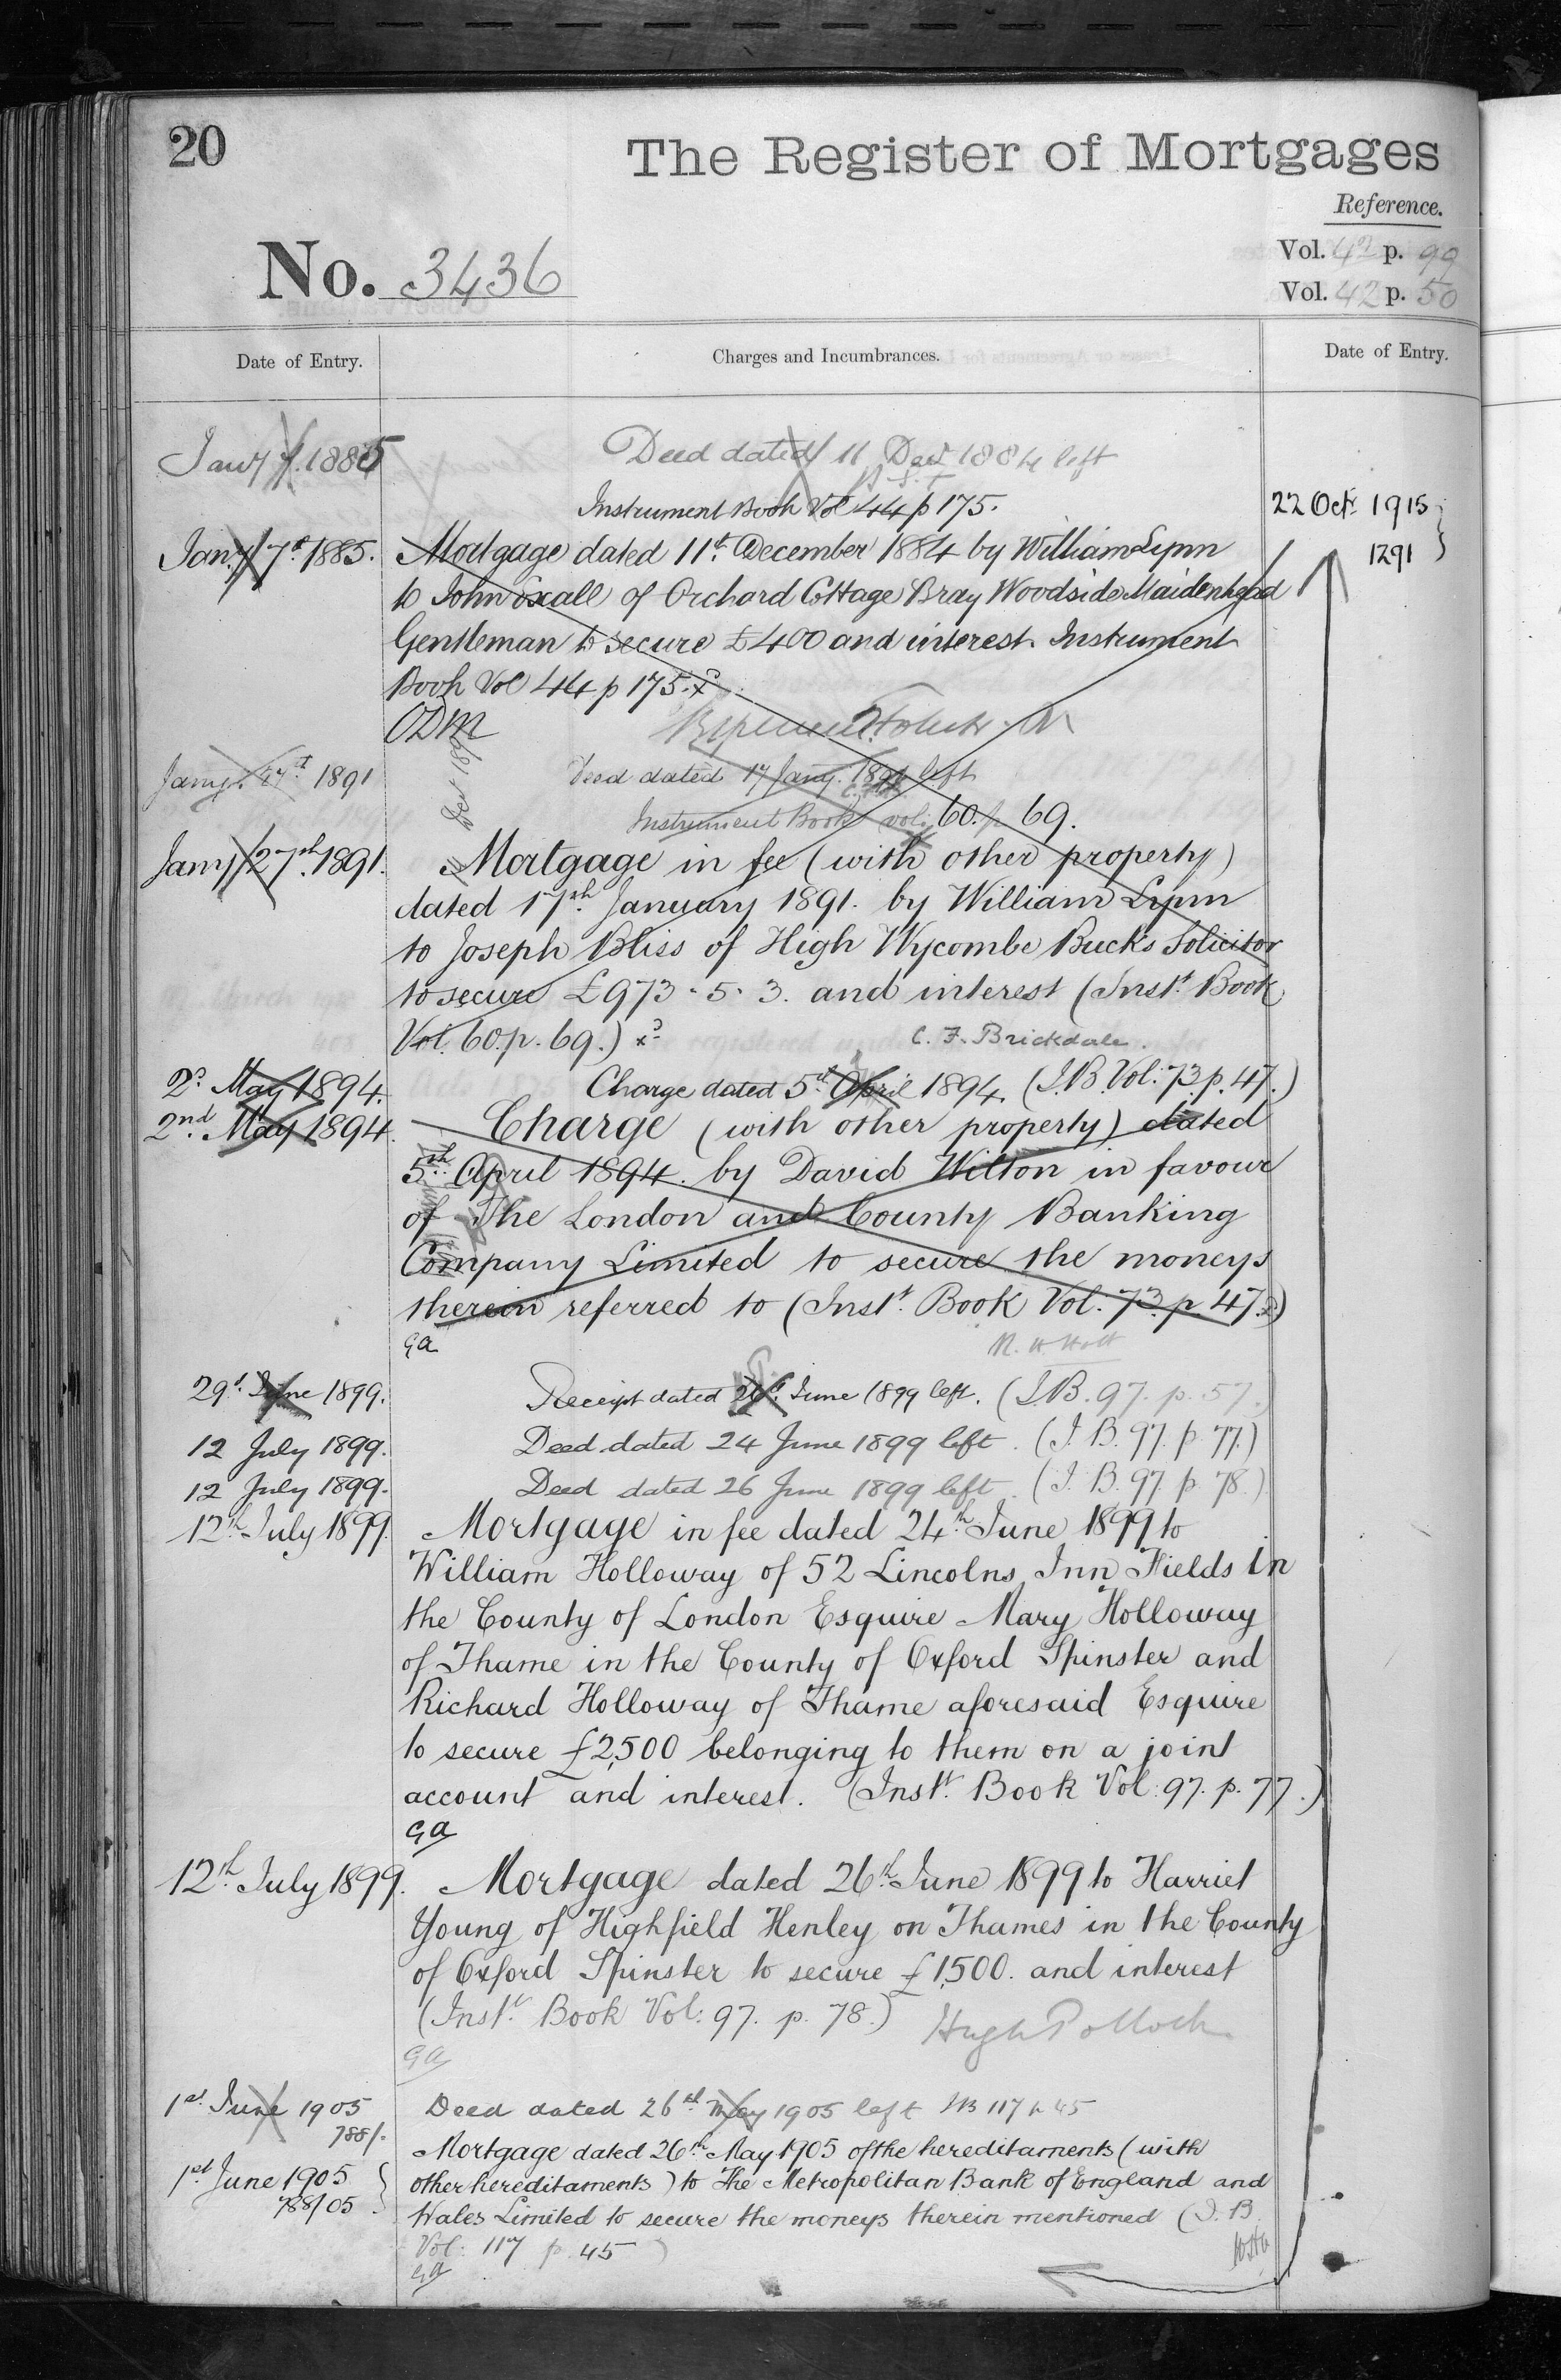 20
The Register of Mortgages
Reference.
No. 3436
Vol. p. 99
Vol. 42 p. 50
Date of Entry.
Charges and Incumbrances.
Date of Entry.
Jany 7. 1885
Deed dated 11 Decr 1884 left
Instrument Book Vol 44 p 175.
22 Octr 1915
1291
Jany 7th 1885.
Mortgage dated 11th December 1884 by William Lynn
to John of Orchard Cottage Bray Woodside Maidenhead
Gentleman to secure £400 and interest. Instrument
Book Vol 44 p 175.
ODM
Jany. 27th 1891
Deed dated 17 Jany. 1891 left
Instrument Book vol. 60. p 69.
Jany 27th 1891.
Mortgage in fee (with other property)
dated 17th January 1891. by William Lynn
to Joseph Bliss of High Wycombe Bucks Solicitor
to secure £973. 5. 3. and interest (Inst. Book
Vol. 60. p. 69.)
C. F. Brickdale.
2d May 1894.
Charge dated 5th April 1894. (I.B. Vol: 73. p. 47.)
2nd May 1894.
Charge (with other property) dated
5th April 1894. by David Wilton in favour
of The London and County Banking
Company Limited to secure the moneys
therein referred to (Inst. Book Vol. 73. p 47.)
GA
R. H. Holt
29th June 1899.
Receipt dated June 1899 left. (I.B. 97. p. 57.)
12 July 1899.
Deed dated 24 June 1899 left. (I.B. 97. p. 77.)
12 July 1899.
Deed dated 26 June 1899 left. (I.B. 97. p. 78.)
12th July 1899.
Mortgage in fee dated 24th June 1899 to
William Holloway of 52 Lincolns Inn Fields in
the County of London Esquire Mary Holloway
of Thame in the County of Oxford Spinster and
Richard Holloway of Thame aforesaid Esquire
to secure £2,500 belonging to them on a joint
account and interest. (Inst. Book Vol: 97. p. 77.)
GA
12th July 1899.
Mortgage dated 26th June 1899 to Harriet
Young of Highfield Henley on Thames in the County
of Oxford Spinster to secure £1,500. and interest
(Inst. Book Vol: 97. p. 78.)
Hugh Pollock
GA
1st June 1905
788/.
Deed dated 26th May 1905 left IB 117 p 45
1st June 1905
788/05
Mortgage dated 26th May 1905 of the hereditaments (with
other hereditaments) to The Metropolitan Bank of England and
Wales Limited to secure the moneys therein mentioned (I.B.
Vol: 117 p. 45)
GA